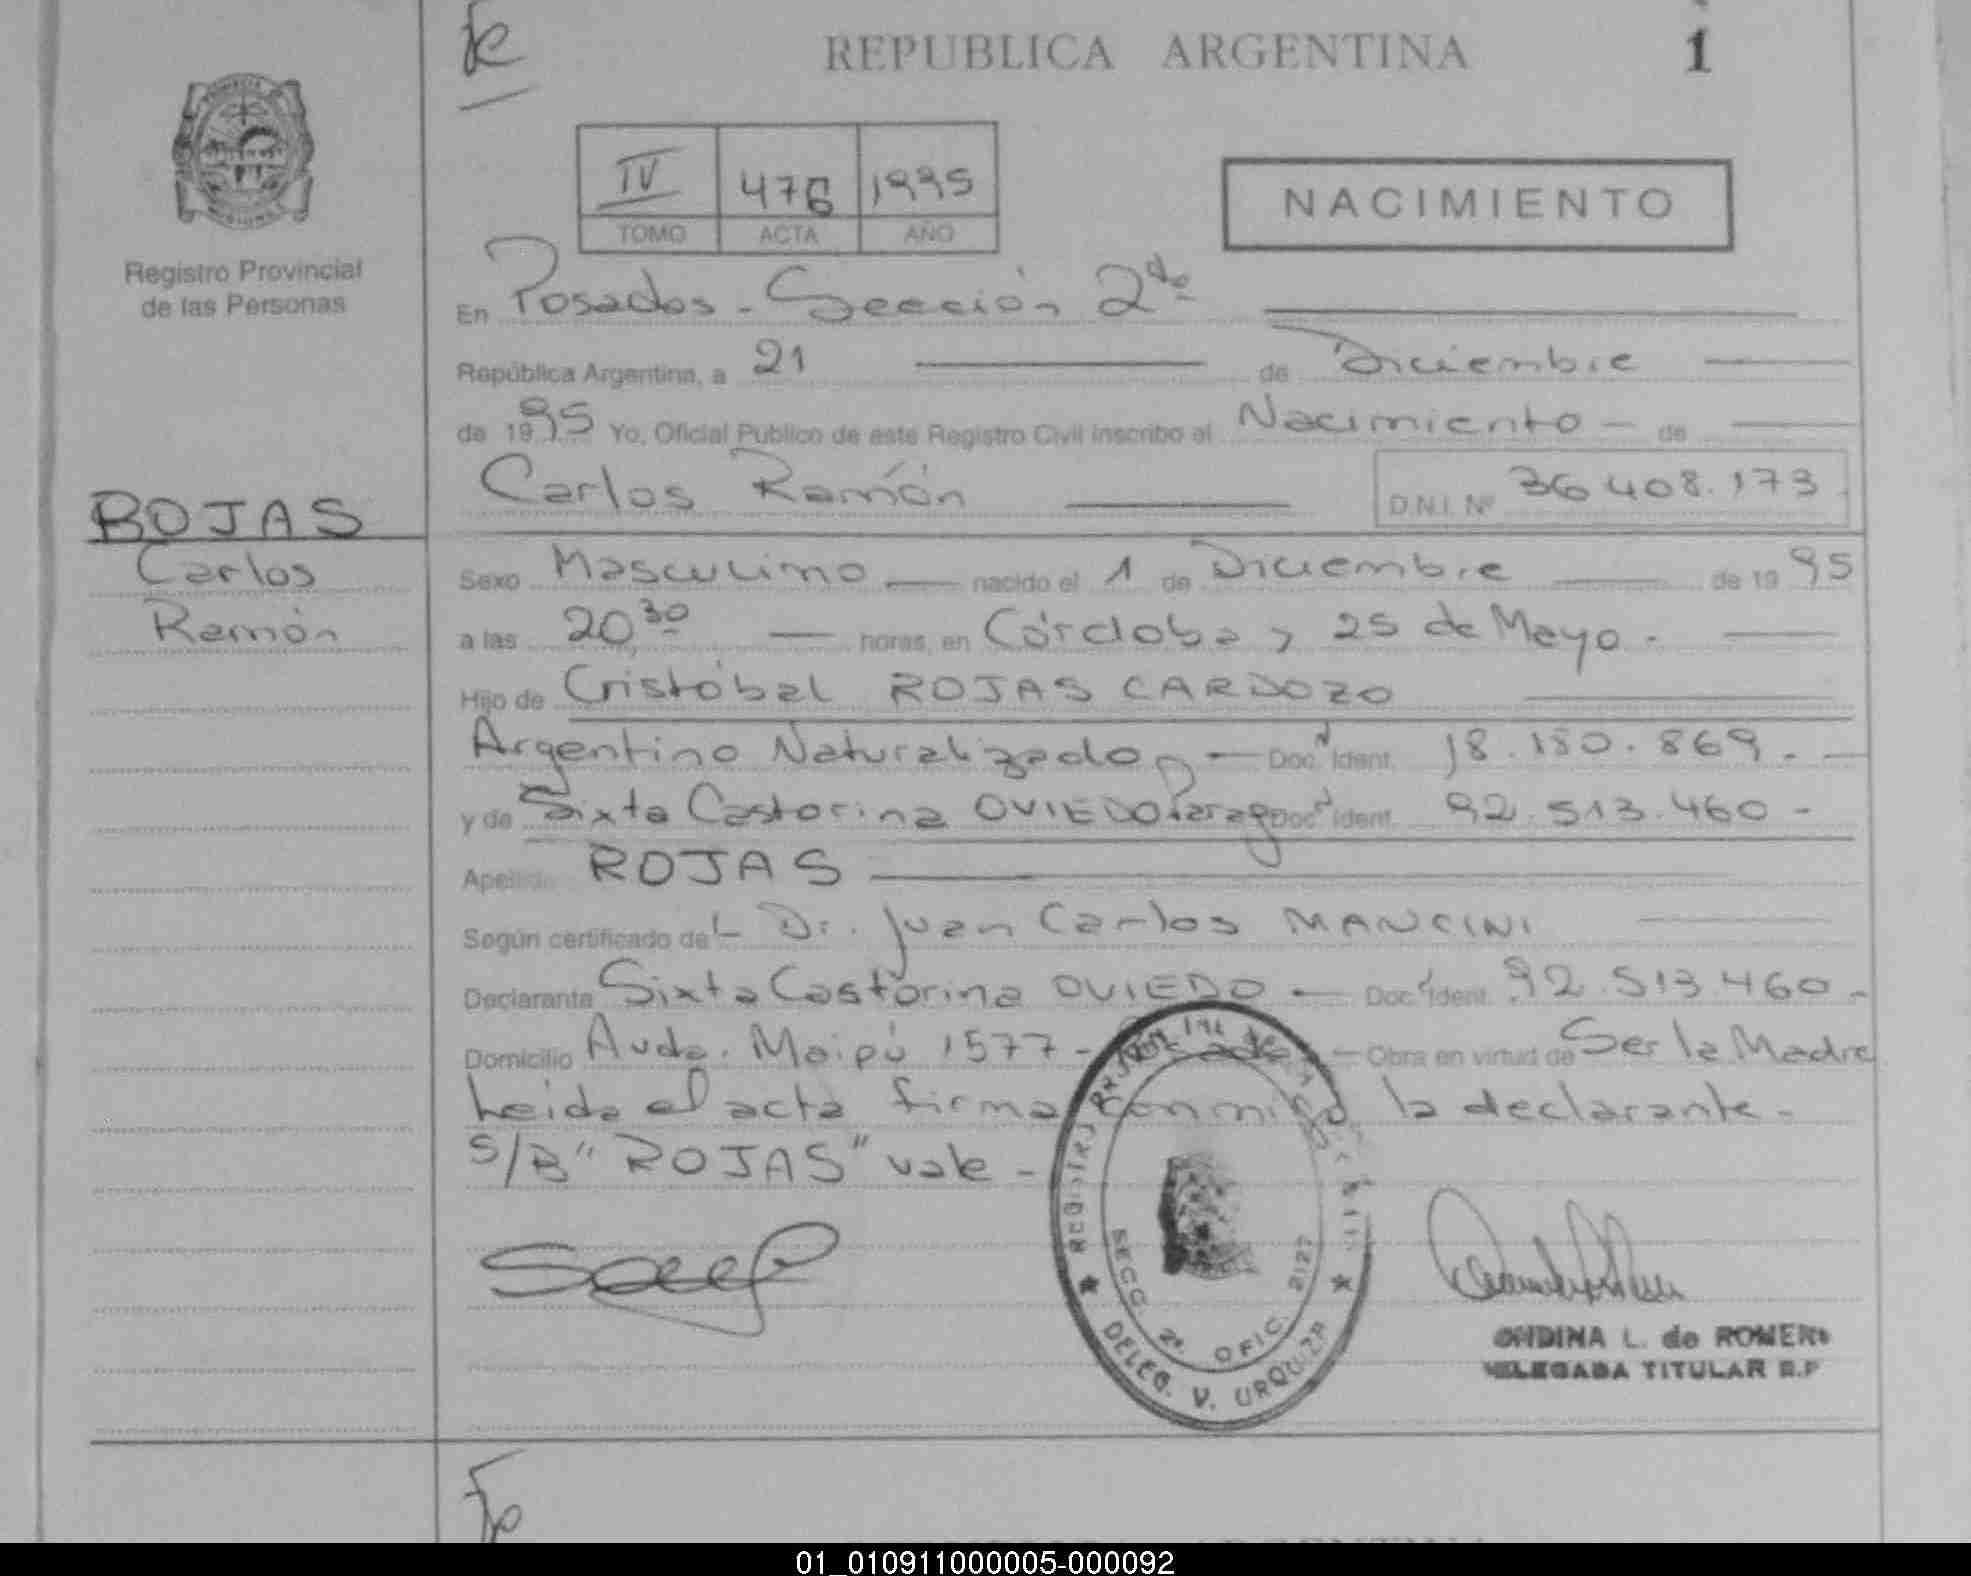 REPUBLICA ARGENTINA
1
IV 476 1995
TOMO ACTA AÑO
NACIMIENTO
Registro Provincial
de las Personas
En Posadas - Sección 2da
República Argentina, a 21 de Diciembre
de 1995 Yo, Oficial Público de este Registro Civil inscribo el Nacimiento - de
Carlos Ramón D.N.I. Nº 36.408.173
ROJAS
Carlos
Ramón
Sexo Masculino nacido el 1 de Diciembre de 1995
a las 20,30 horas, en Córdoba y 25 de Mayo.
Hijo de Cristóbal ROJAS CARDOZO
Argentino Naturalizado Doc. Ident. 18.180.869.
y de Sixta Castorina OVIEDO Parag Doc. Ident. 92.513.460 -
Apellido ROJAS
Según certificado del Dr. Juan Carlos MANCINI
Declarante Sixta Castorina OVIEDO Doc. Ident. 92.513.460 -
Domicilio Avda. Maipú 1577 - Posadas Obra en virtud de Ser la Madre
Leida el acta firma conmigo la declarante -
S/B "ROJAS" vale -
REGISTRO PROVINCIAL DE LAS
SECC. 2ª. OFIC. 2127
DELEG. V. URQUIZA
ONDINA L. de ROMERO
DELEGADA TITULAR R.P
01_010911000005-000092